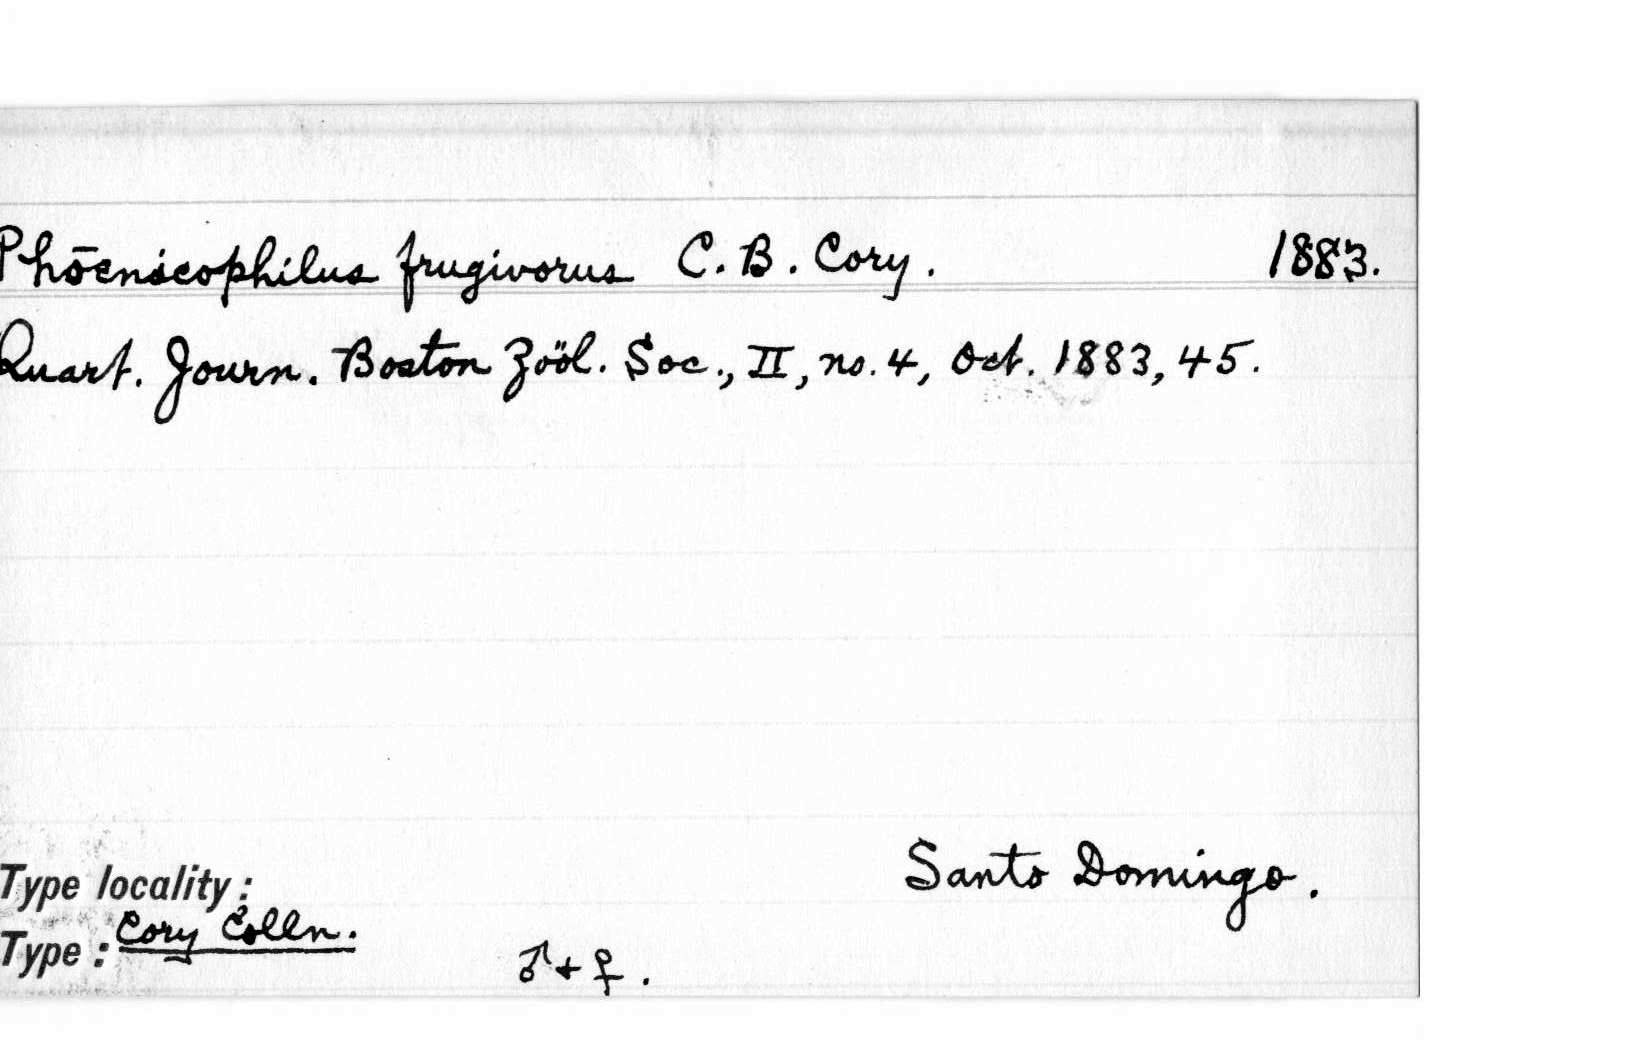 Phoenicophilus frugivorus C. B. Cory. 1883.
Quart. Journ. Boston Zoöl. Soc., II, no. 4, Oct. 1883, 45.
Type locality: Santo Domingo.
Type: Cory Colln. ♂ + ♀.